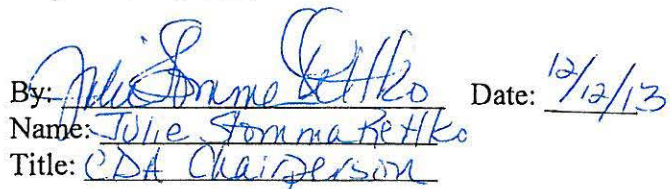 By: Julie Stomma Rettko Date: 12/12/13
Name: Julie Stomma Rettko
Title: CDA Chairperson